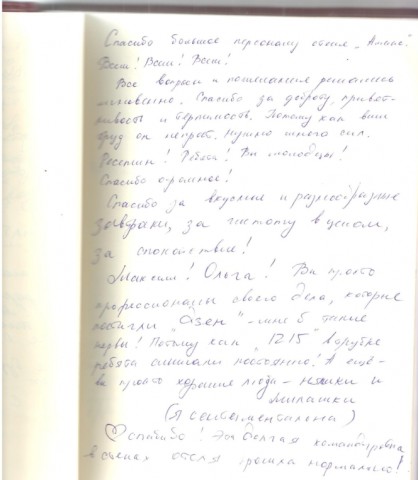 Спасибо большое персоналу отеля „Амакс"
Всем! Всем! Всем!
Все вопросы и пожелания решались
мгновенно. Спасибо за доброту, привет-
ливость и терпимость. Потому как ваш
труд он непрост. Нужно много сил.
Ресепшн! Ребята! Вы молодцы!
Спасибо огромное!
Спасибо за вкусные и разнообразные
завтраки, за чистоту в
за спокойствие!
Максим! Ольга! Вы просто
профессионалы своего дела, которые
постигли "Дзен" - мне б такие
нервы! Потому как "1215" в трубке
ребята слышали постоянно! А ещё -
вы просто хорошие люди - няшки и
милашки
(Я сентиментальна)
♡ спасибо! Эта долгая командировка
в стенах отеля прошла нормально!